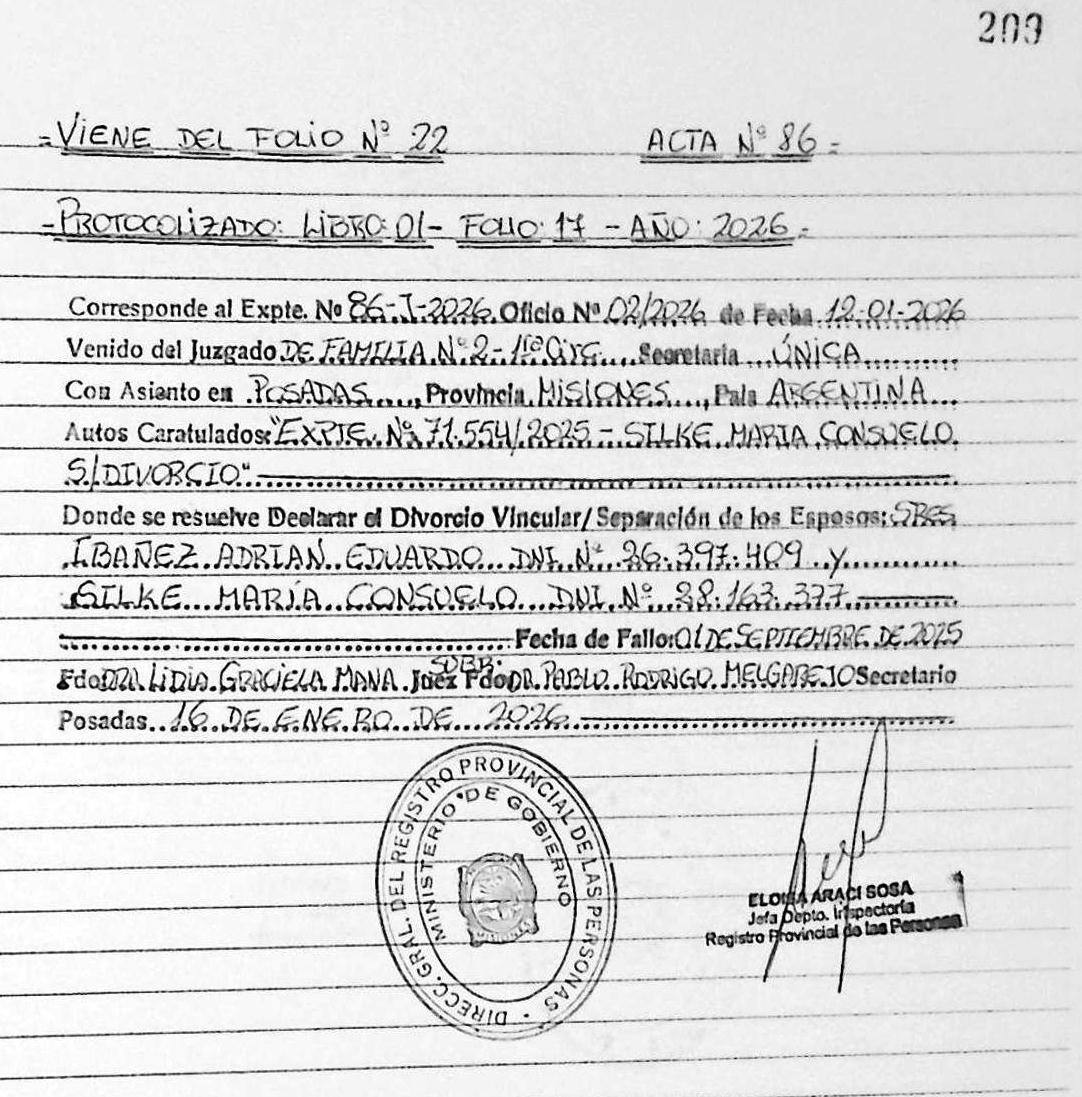 209
=VIENE DEL FOLIO Nº 22 ACTA Nº 86=
=PROTOCOLIZADO: LIBRO: 01- FOLIO: 17 - AÑO: 2026=
Corresponde al Expte. Nº 86-I-2026. Oficio Nº 02/2026 de Fecha 12-01-2026
Venido del Juzgado DE FAMILIA Nº 2 - 1ra Circ. Secretaria ÚNICA
Con Asiento en POSADAS, Provincia MISIONES, País ARGENTINA
Autos Caratulados: "EXPTE. Nº 71.554/2025 - SILKE MARIA CONSUELO
S/DIVORCIO"
Donde se resuelve Declarar el Divorcio Vincular/Separación de los Esposos: SRES
IBAÑEZ ADRIAN EDUARDO DNI Nº 36.397.409 y
SILKE MARÍA CONSUELO DNI Nº 38.163.377
Fecha de Fallo: 01 DE SEPTIEMBRE DE 2025
Fdo DRA. LIDIA GRACIELA MANA. Juez Fdo DR. PABLO RODRIGO MELGAREJO Secretario
Posadas 16 DE ENERO DE 2026
DIRECC. GRAL. DEL REGISTRO PROVINCIAL DE LAS PERSONAS
MINISTERIO DE GOBIERNO
ELOISA ARACI SOSA
Jefa Depto. Inspectoría
Registro Provincial de las Personas